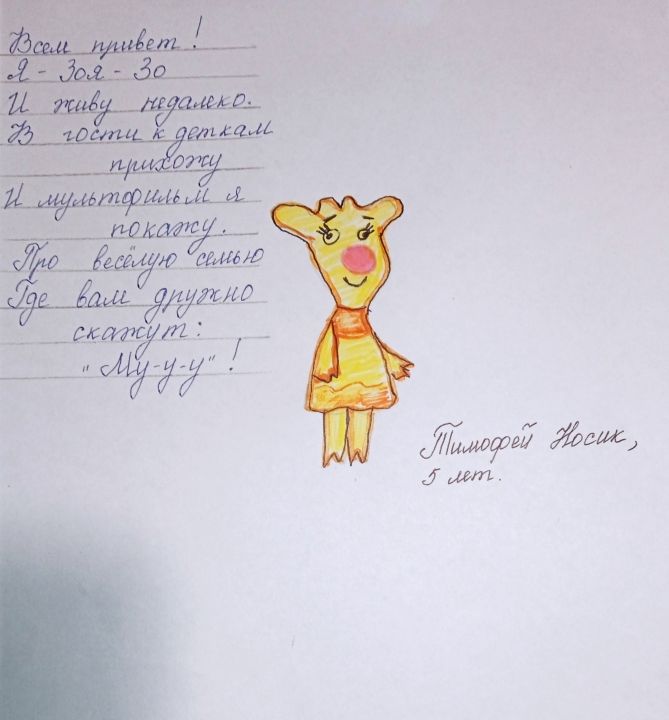 Всем привет!
Я - Зоя - Зо
И живу недалеко.
В гости к деткам
прихожу
И мультфильм я
покажу.
Про весёлую семью
Где вам дружно
скажут:
"Му-у-у"!
Тимофей Носик,
5 лет.